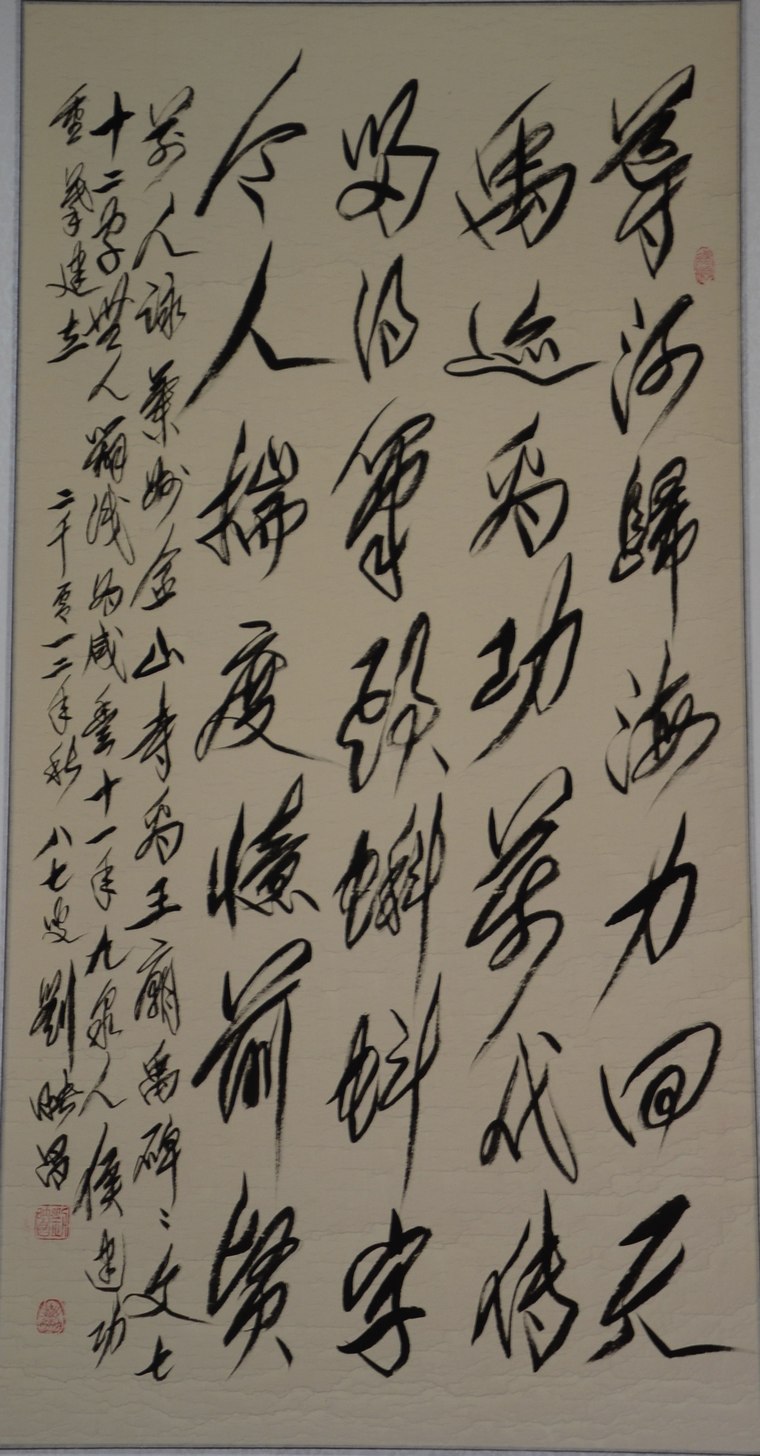 導河歸海力回天
禹迹為功萬代傳
留得筆頭蝌蚪字
令人揣度憶前賢
前人詠蘭州金山寺禹王廟禹碑〻文七
十二字無人識為咸豐十一年九泉人侯建功
重摹建立 二千零一二年秋 八七叟劉昌